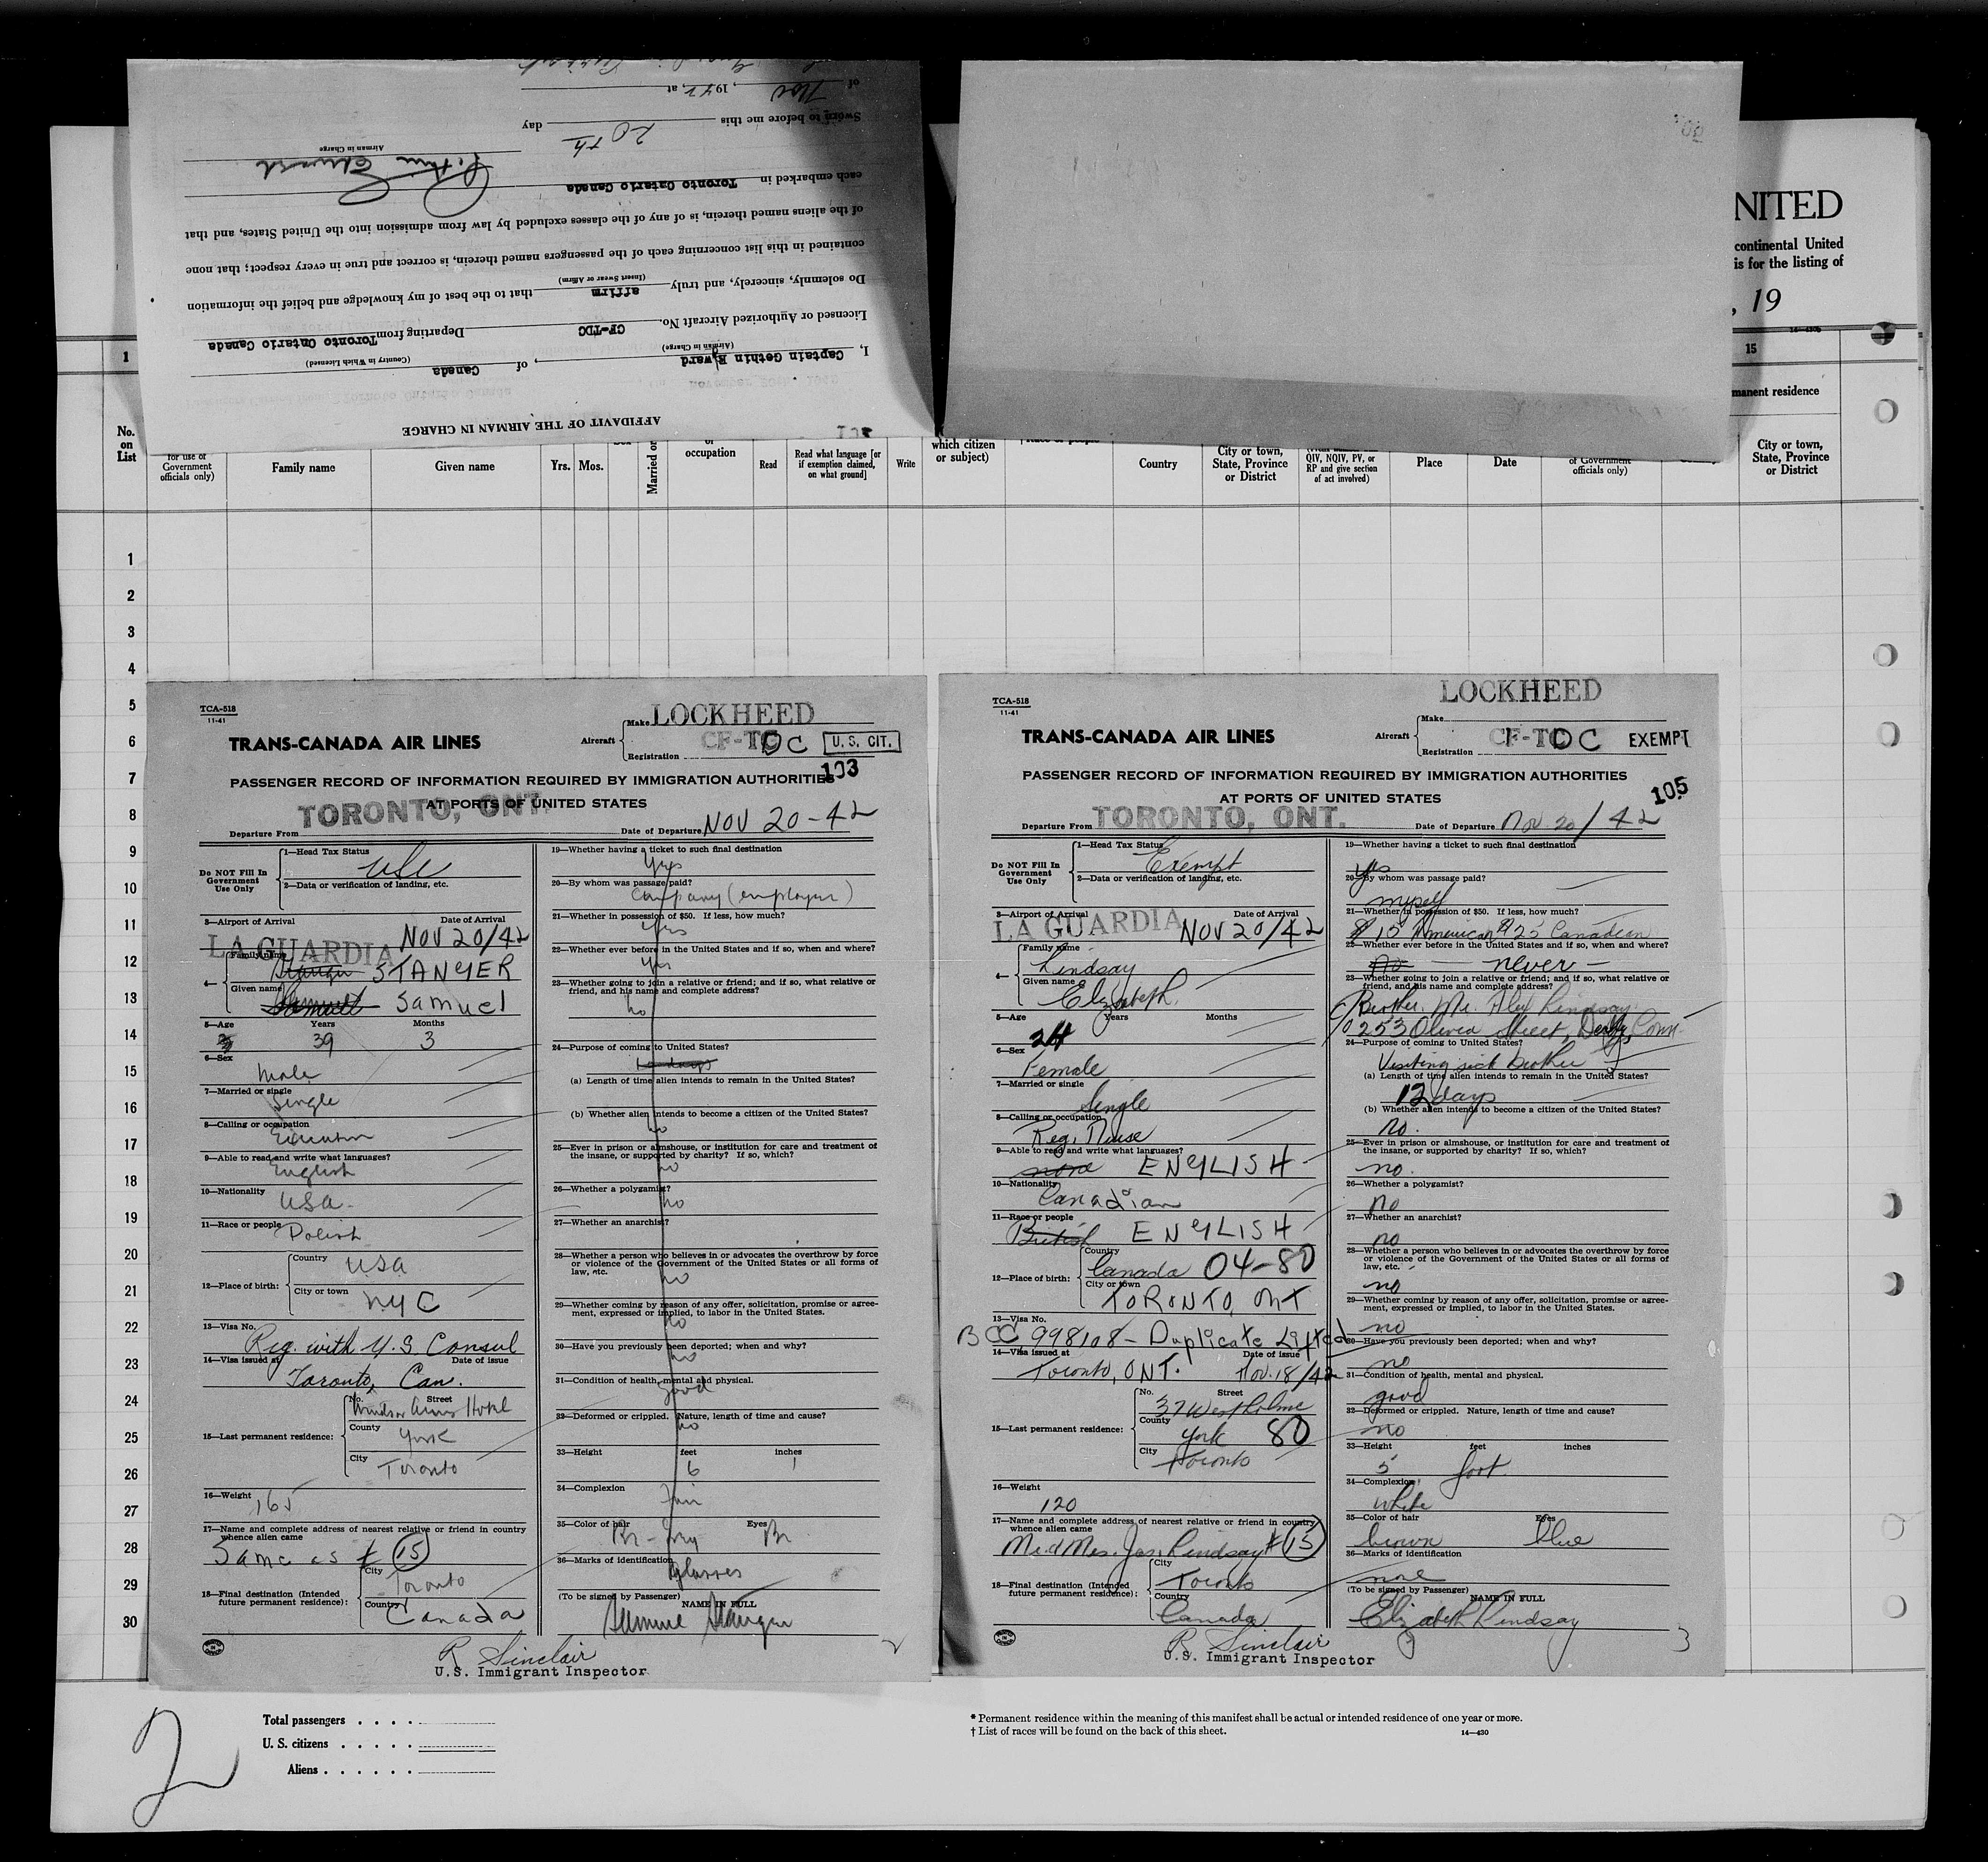 AFFIDAVIT OF THE AIRMAN IN CHARGE
I, Captain Gethin Edward, of Canada
(Airman in Charge) (Country in Which Licensed)
Licensed or Authorized Aircraft No. CF-TDC Departing from Toronto Ontario Canada
Do solemnly, sincerely, and truly affirm that to the best of my knowledge and belief the information
(Insert Swear or Affirm)
contained in this list concerning each of the passengers named therein, is correct and true in every respect; that none
of the aliens named therein, is of any of the classes excluded by law from admission into the United States, and that
each embarked in Toronto Ontario Canada
Airman in Charge
Sworn to before me this 20th day
of Nov, 1942, at
NITED
continental United
is for the listing of
, 19
1
15
manent residence
No.
on
List
for use of
Government
officials only)
Family name
Given name
Yrs. Mos.
Married or
or
occupation
Read
Read what language [or
if exemption claimed,
on what ground]
Write
which citizen
or subject)
Country
City or town,
State, Province
or District
QIV, NQIV, PV, or
RP and give section
of act involved)
Place
Date
of Government
officials only)
City or town,
State, Province
or District
1
2
3
4
5
6
7
8
9
10
11
12
13
14
15
16
17
18
19
20
21
22
23
24
25
26
27
28
29
30
TCA-518
11-41
TRANS-CANADA AIR LINES
Aircraft
Make LOCKHEED
Registration CF-TDC
U. S. CIT.
103
PASSENGER RECORD OF INFORMATION REQUIRED BY IMMIGRATION AUTHORITIES
AT PORTS OF UNITED STATES
Departure From TORONTO, ONT. Date of Departure NOV 20-42
Do NOT Fill In
Government
Use Only
1—Head Tax Status USC
2—Data or verification of landing, etc.
3—Airport of Arrival Date of Arrival
LA GUARDIA NOV 20/42
4— Family name STANGER
Given name Samuel
5—Age Years 39 Months 3
6—Sex Male
7—Married or single Single
8—Calling or occupation
9—Able to read and write what languages? English
10—Nationality USA
11—Race or people Polish
12—Place of birth: Country USA
City or town NYC
13—Visa No. Reg. with U.S. Consul
14—Visa issued at Date of issue
Toronto, Can.
15—Last permanent residence: No. Street Windsor Arms Hotel
County York
City Toronto
16—Weight 165
17—Name and complete address of nearest relative or friend in country
whence alien came
Same as # 15
18—Final destination (Intended
future permanent residence): City Toronto
Country Canada
19—Whether having a ticket to such final destination
Yes
20—By whom was passage paid?
Company (employer)
21—Whether in possession of $50. If less, how much?
Yes
22—Whether ever before in the United States and if so, when and where?
Yes
23—Whether going to join a relative or friend; and if so, what relative or
friend, and his name and complete address?
no
24—Purpose of coming to United States?
(a) Length of time alien intends to remain in the United States?
(b) Whether alien intends to become a citizen of the United States?
no
25—Ever in prison or almshouse, or institution for care and treatment of
the insane, or supported by charity? If so, which?
no
26—Whether a polygamist?
no
27—Whether an anarchist?
28—Whether a person who believes in or advocates the overthrow by force
or violence of the Government of the United States or all forms of
law, etc.
no
29—Whether coming by reason of any offer, solicitation, promise or agree-
ment, expressed or implied, to labor in the United States.
no
30—Have you previously been deported; when and why?
no
31—Condition of health, mental and physical.
good
32—Deformed or crippled. Nature, length of time and cause?
no
33—Height feet inches
6 1
34—Complexion
Fair
35—Color of hair Eyes
Br-Gry Br
36—Marks of identification
glasses
(To be signed by Passenger) NAME IN FULL
Samuel Stanger
2
R Sinclair
U.S. Immigrant Inspector
TCA-518
11-41
TRANS-CANADA AIR LINES
Aircraft
LOCKHEED
Make
Registration CF-TDC
EXEMPT
105
PASSENGER RECORD OF INFORMATION REQUIRED BY IMMIGRATION AUTHORITIES
AT PORTS OF UNITED STATES
Departure From TORONTO, ONT. Date of Departure Nov. 20/42
Do NOT Fill In
Government
Use Only
1—Head Tax Status Exempt
2—Data or verification of landing, etc.
3—Airport of Arrival Date of Arrival
LA GUARDIA NOV 20/42
4— Family name Lindsay
Given name Elizabeth
5—Age Years Months
24
6—Sex Female
7—Married or single Single
8—Calling or occupation Reg. Nurse
9—Able to read and write what languages?
none ENGLISH
10—Nationality Canadian
11—Race or people British ENGLISH
12—Place of birth: Country Canada 04-80
City or town TORONTO, ONT
13—Visa No.
BCC 998108 - Duplicate Lifted
14—Visa issued at Date of issue
Toronto, ONT. Nov. 18/42
15—Last permanent residence: No. Street 37 Westholme
County York 80
City Toronto
16—Weight 120
17—Name and complete address of nearest relative or friend in country
whence alien came
Mr. & Mrs. Jas. Lindsay # 15
18—Final destination (Intended
future permanent residence): City Toronto
Country Canada
19—Whether having a ticket to such final destination
yes
20—By whom was passage paid?
myself
21—Whether in possession of $50. If less, how much?
$15 American $25 Canadian
22—Whether ever before in the United States and if so, when and where?
no — never —
23—Whether going to join a relative or friend; and if so, what relative or
friend, and his name and complete address?
Brother, Mr. Alex Lindsay
c/o 253 Olivia Street, Derby, Conn.
24—Purpose of coming to United States?
Visiting sick brother
(a) Length of time alien intends to remain in the United States?
12 days
(b) Whether alien intends to become a citizen of the United States?
no.
25—Ever in prison or almshouse, or institution for care and treatment of
the insane, or supported by charity? If so, which?
no.
26—Whether a polygamist?
no
27—Whether an anarchist?
no
28—Whether a person who believes in or advocates the overthrow by force
or violence of the Government of the United States or all forms of
law, etc.
no
29—Whether coming by reason of any offer, solicitation, promise or agree-
ment, expressed or implied, to labor in the United States.
no
30—Have you previously been deported; when and why?
no
31—Condition of health, mental and physical.
good
32—Deformed or crippled. Nature, length of time and cause?
no
33—Height feet inches
5 foot
34—Complexion
white
35—Color of hair Eyes
brown blue
36—Marks of identification
none
(To be signed by Passenger) NAME IN FULL
Elizabeth Lindsay
3
R Sinclair
U.S. Immigrant Inspector
2
Total passengers . . . .
U. S. citizens . . . . .
Aliens . . . . . .
* Permanent residence within the meaning of this manifest shall be actual or intended residence of one year or more.
† List of races will be found on the back of this sheet.
14—430